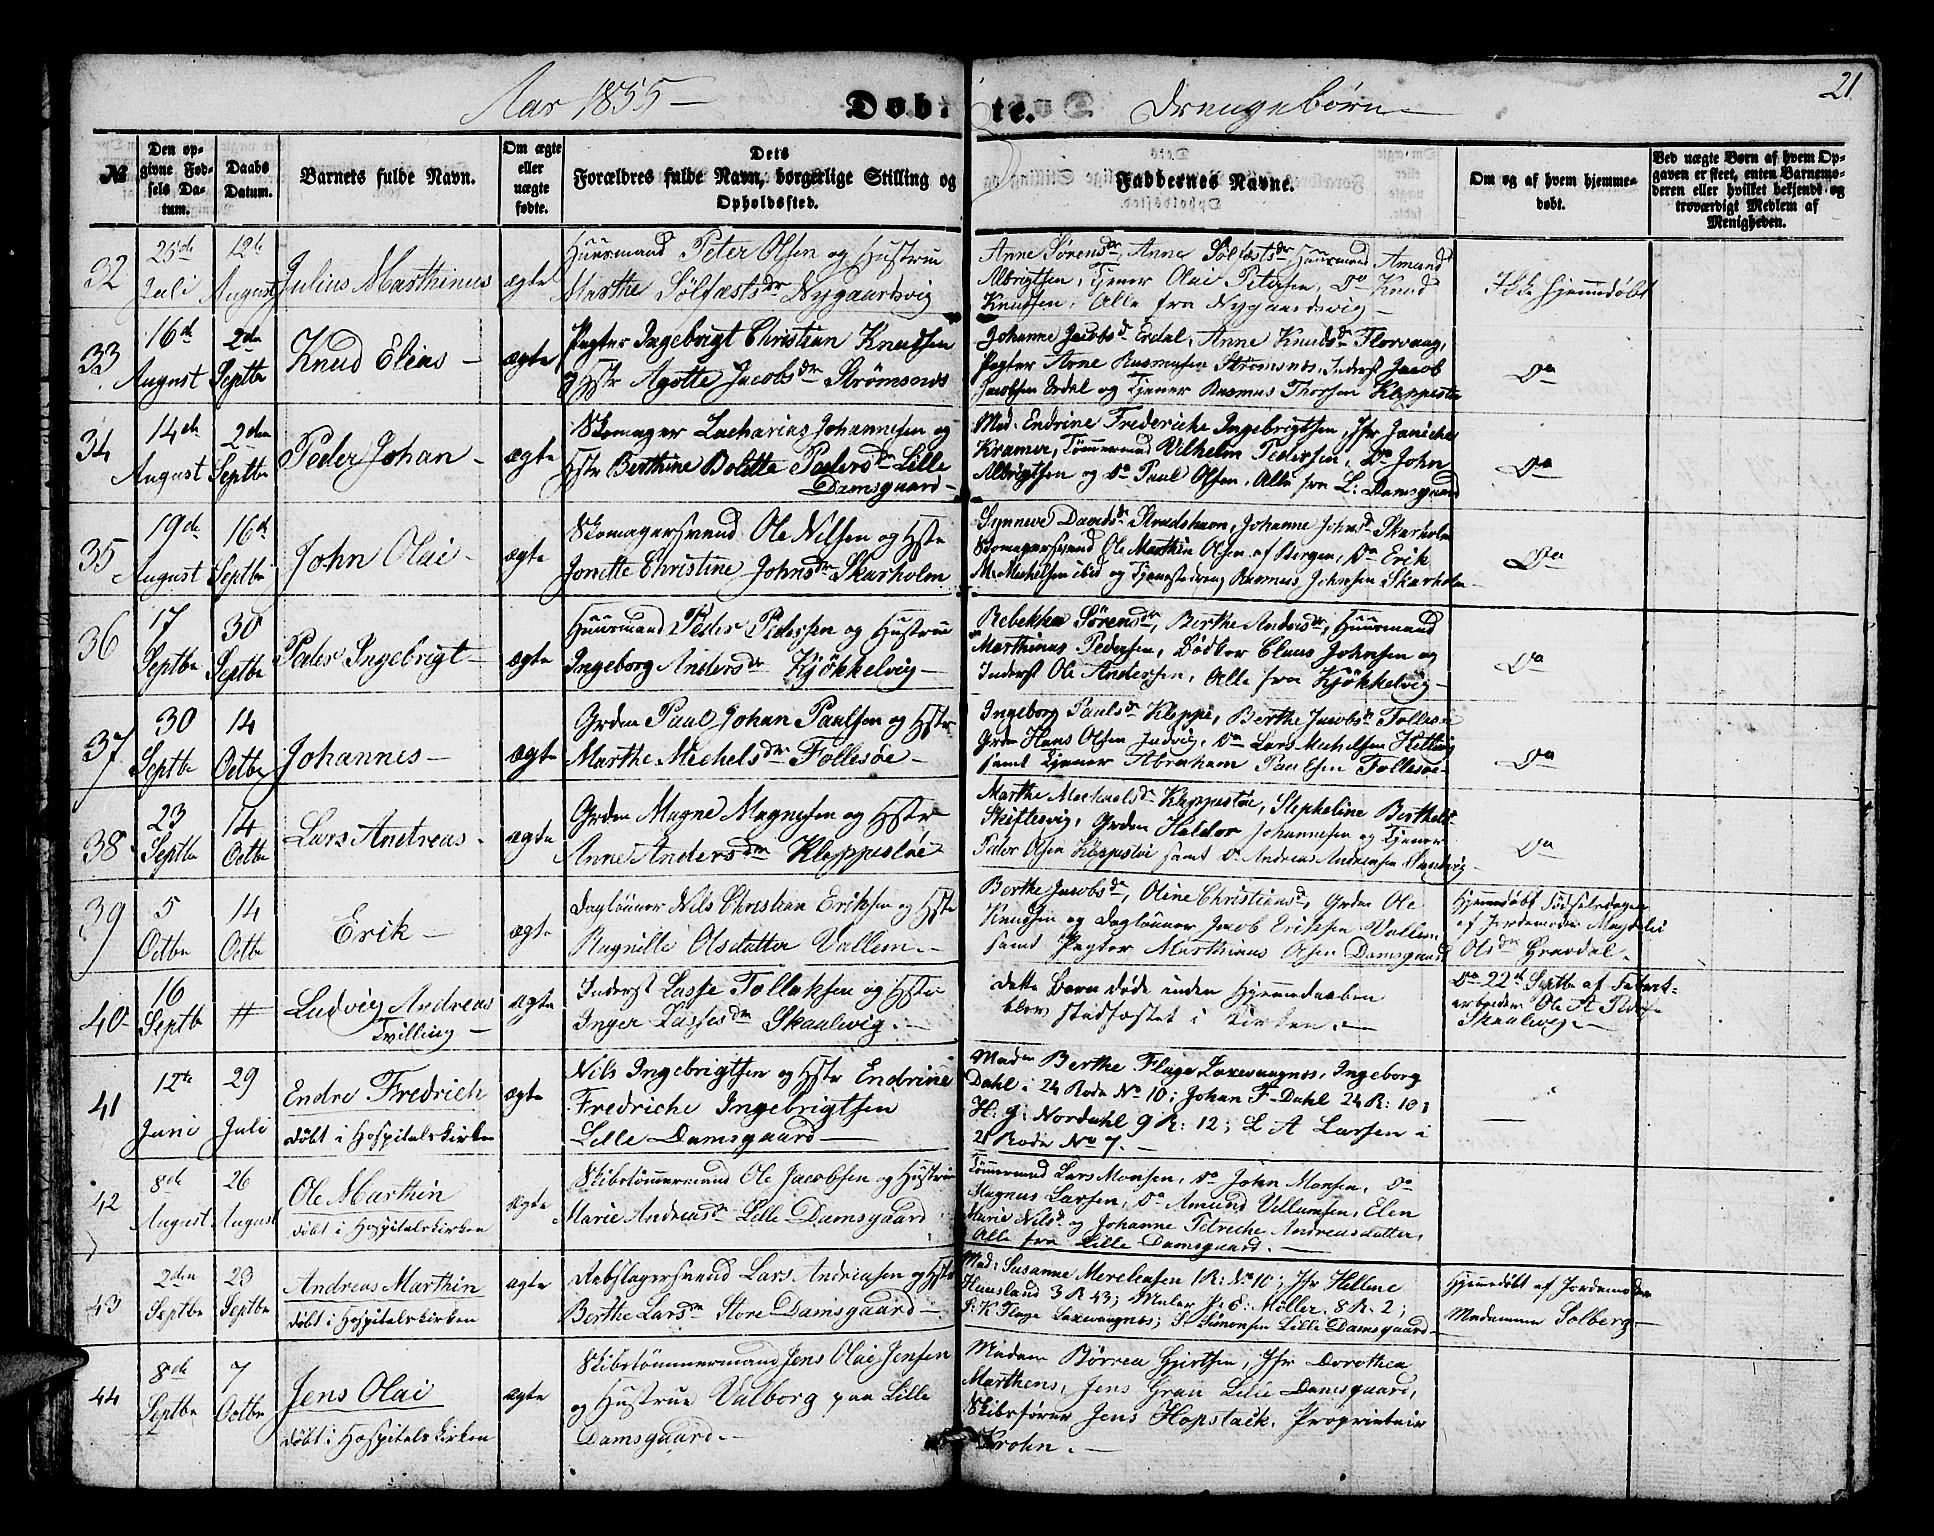 21
Aar 1855 — Døbte. Drengebørn
№
Den opgivne Fødsels Datum.
Daabs Datum.
Barnets fulde Navn.
Om ægte eller uægte fødte.
Dets Forældres fulde Navn, borgerlige Stilling og Opholdssted.
Faddernes Navne.
Om og af hvem hjemmedøbt.
Ved uægte Børn af hvem Opgaven er skeet, enten Barnemoderen eller hvilket bekjendt og troværdigt Medlem af Menigheden.
32
25de Juli
12te August
Julius Marthinus
ægte
Huusmand Peter Olsen og Hustrue
Marthe Sølfæstsdr Nygaardsvig
Anne Sørensdr, Anne Sølfæstsdr, Huusmand Amund
Albrigtsen, Tjener Olai Petersen, Do Knud
Knudsen, Alle fra Nygaardsvig —
Ikke hjemmedøbt
33
16de August
2den Septbr
Knud Elias —
ægte
Pagter Ingebrigt Christian Knudsen
og Hstr Agotte Jacobsdr Strømsnes
Johanne Jacobsdr Erdal, Anne Knudsdr Florvaag,
Pagter Arne Rasmusen Strømsnes, Inderst Jacob
Jacobsen Erdal og Tjener Rasmus Thorsen Kleppestø
Do
34
14de August
2den Septbr
Peder Johan —
ægte
Skomager Zacharias Johannesen og
Hstr Berthine Bolette Pedersdr Lille
Damsgaard —
Mad. Endrine Frederiche Ingebrigtsen, Jfr Janiche
Kramer, Tømmermand Vilhelm Pedersen, Do John
Albrigtsen og Do Paul Olsen, Alle fra L: Damsgaard
Do
35
19de August
16de Septbr
John Olai —
ægte
Skomagersvend Ole Nilsen og Hstr
Jonette Christine Johnsdr Skarholm
Synneve Davidsdr Strudshavn, Johanne Johnsdr Skarholm
Skomagersvend Ole Marthin Olsen af Bergen, Do Erik
M. Michelsen ibid og Tjenestedreng Rasmus Johnsen Skarholm
Do
36
17 Septbr
30 Septbr
Peder Ingebrigt —
ægte
Huusmand Peder Pedersen og Hustrue
Ingeborg Andersdr Kjøkkelvig —
Rebekka Sørensdr, Berthe Andersdr, Huusmand
Marthinus Pedersen, Bødker Claus Johnsen og
Inderst Ole Andersen, Alle fra Kjøkkelvig —
Do
37
30 Septbr
14 Octbr
Johannes —
ægte
Grdm Paul Johan Paulsen og Hstr
Marthe Michelsdr Follesøe —
Ingeborg Paulsdr Kleppe, Berthe Jacobsdr Follesøe
Grdm Hans Olsen Juvig, Do Lars Michelsen Hetlevig
samt Tjener Abraham Paulsen Follesøe —
Do
38
23 Septbr
14 Octbr
Lars Andreas —
ægte
Grdm Magne Magnesen og Hstr
Anne Andersdr Kleppestøe
Marthe Michaelsdr Kleppestøe, Stepheline Berthels
Skiftesvig, Grdm Haldor Johannesen og Tjener
Peder Olsen Kleppestøe samt Do Andreas Andreasen Sandvig
Do
39
5 Octbr
14 Octbr
Erik —
ægte
Daglønner Nils Christian Eriksen og Hstr
Ragnille Olsdatter Vallem —
Berthe Jacobsdr, Oline Christiansdr, Grdm Ole
Knudsen og Daglønner Jacob Eriksen Vallem
samt Pagter Marthinus Olsen Damsgaard
Hjemmedøbt Fødselsdagen
af Jordemoder Magdeli
Olsdr Gravdal —
40
16 Septbr
#
Ludvig Andreas
Tvilling —
ægte
Inderst Lasse Tollaksen og Hstr
Inger Lassesdr Skaalvig —
Dette Barn døde inden Hjemmedaaben
blev stadfæstet i Kirken —
Do 22de Septbr af Fabrik-
arbeider Ole A Peders
Skaalvig —
41
12te Juni
29 Juli
Endre Fredrich
døbt i Hospitalskirken
ægte
Nils Ingebrigtsen og Hstr Endrine
Fredriche Ingebrigtsen
Lille Damsgaard —
Madm Berthe Flage Laxevaagnes, Ingeborg
Dahl i 24 Rode No 10; Johan F. Dahl 24 R: 10;
H. g: Nordahl 9 R: 12; L A Larsen i
21 Rode No 7. —
—
42
8de August
26 August
Ole Marthin
døbt i Hospitalskirken
ægte
Skibstømmermand Ole Jacobsen og Hustrue
Marie Andreasdr Lille Damsgaard
Tømmermand Lars Monsen, Do John Monsen, Do
Magnus Larsen, Do Amund Villumsen, Elen
Marie Nilsd. og Johanne Petreche Andreasdatter,
Alle fra Lille Damsgaard. —
43
2den Septbr
23 Septbr
Andreas Marthin
døbt i Hospitalskirken
ægte
Rebslagersvend Lars Andreasen og Hstr
Berthe Larsdr Store Damsgaard —
Mad: Susanne 1 R: No 10; Jfr Hellene
Hausland 3 R 43; Maler P: E: Møller 8 R. 2;
P: K Flage Laxevaagnes; S. Simonsen Lille Damsgaard —
Hjemmedøbt af Jordemoder
Madamme Solberg —
44
8de Septbr
7 Octbr
Jens Olai
døbt i Hospitalskirken
ægte
Skibstømmermand Jens Olai Jensen
og Hustrue Valborg paa Lille
Damsgaard. —
Madam Børrea Gjertsen, Jfr Dorothea
Marthens, Jens Gran Lille Damsgaard,
Skibsfører Jens Hopstack, Proprietair
Krohn. —